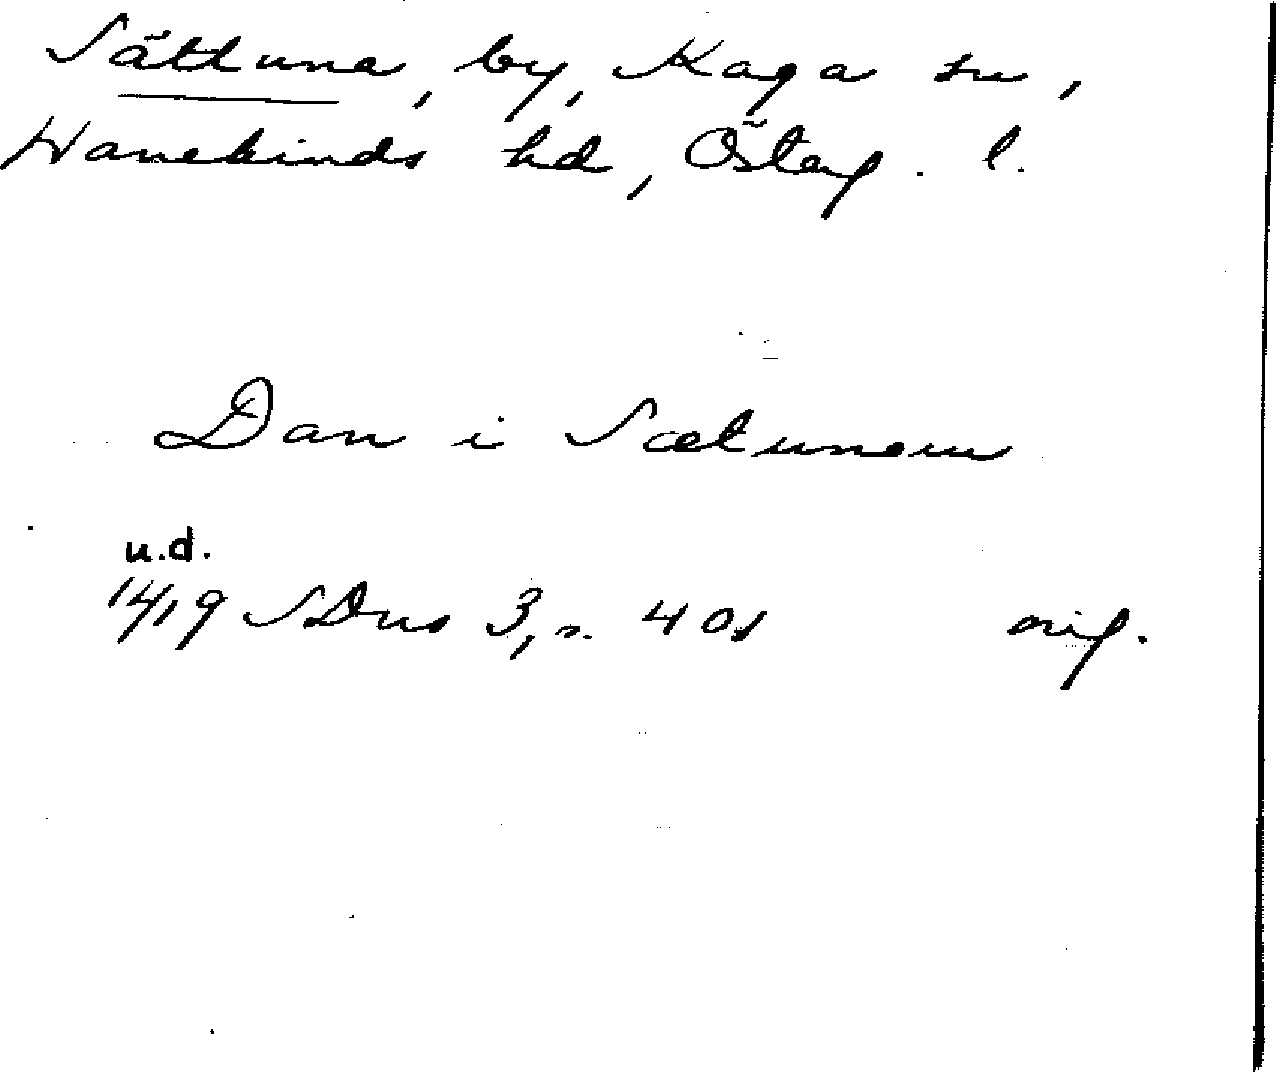 Sättuna, by, Kaga sn,
Hanekinds hd, Österg. l.
Dan i Sætunom
u.d.
1419 SDns 3, s. 401 orig.